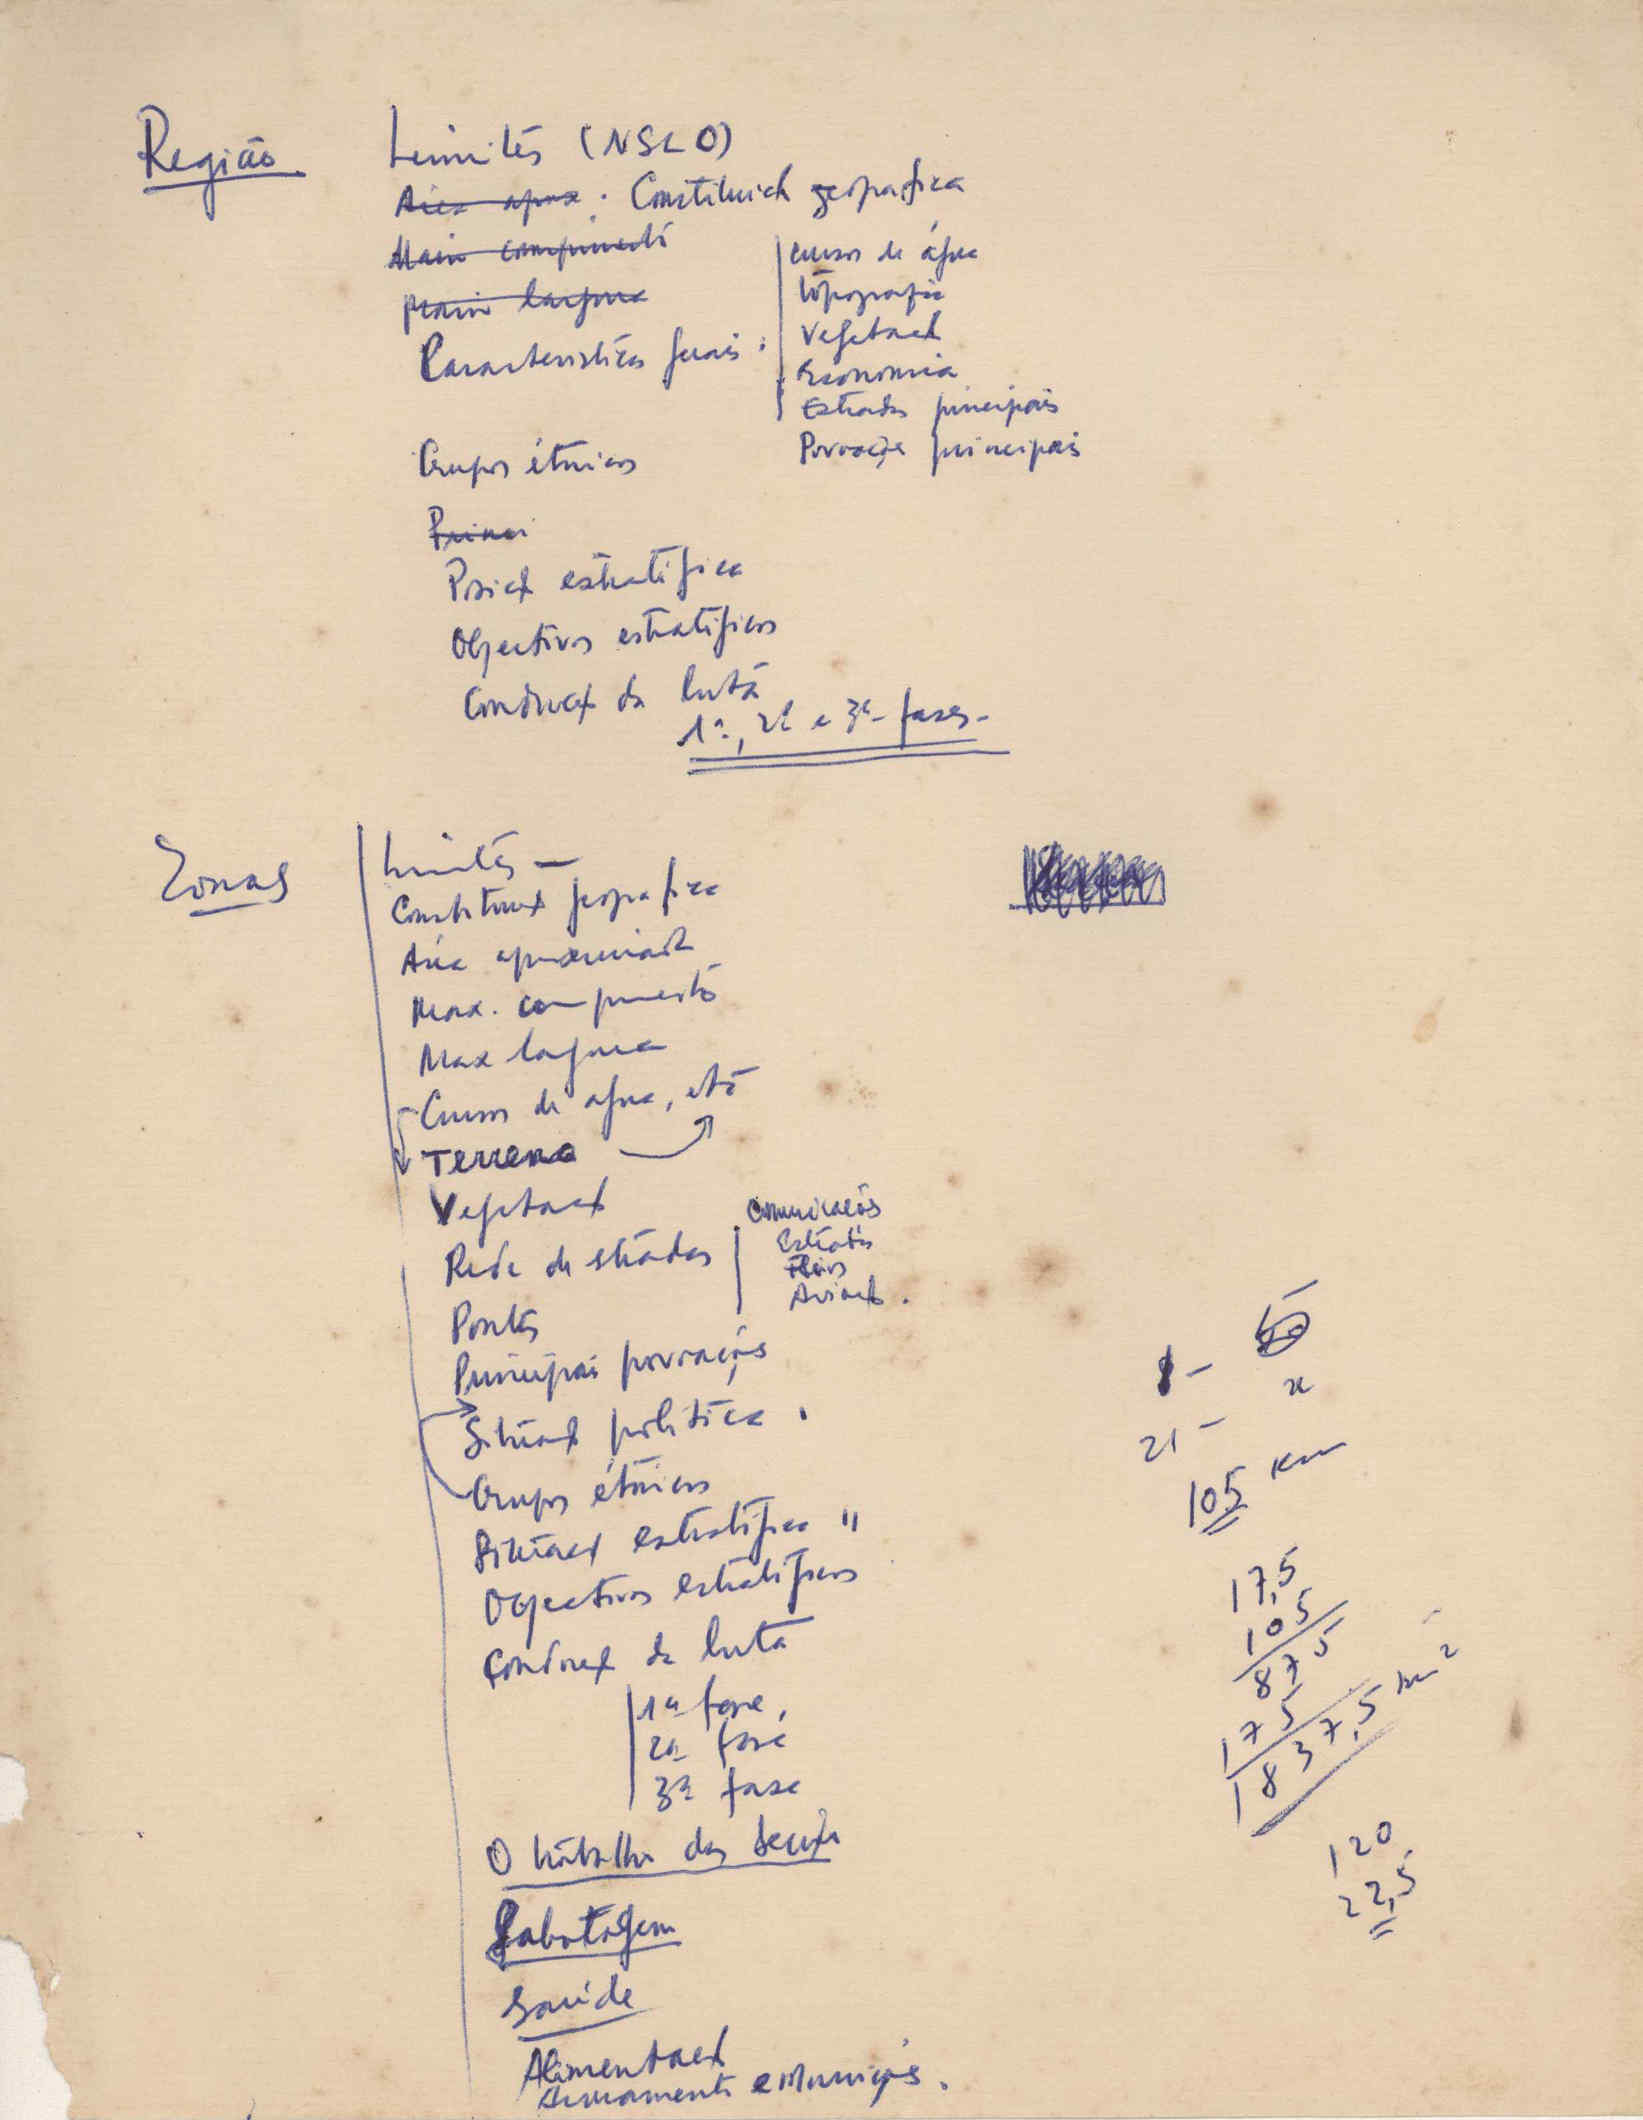 Região
Limites (NSLO)
Área apox. Constituição geografica
Maior comprimento
Maior largura
Características gerais:
Cursos de água
topografia
Vegetação
Economia
Estradas principais
Povoações principais
Grupos étnicos
Princi
Posição estratégica
Objectivos estratégicos
Condução da luta
1ª, 2ª e 3ª fases-
Zonas
Limites -
Constituição geografica
Área aproximada
Max. comprimento
Max largura
Cursos de agua, etc
Terreno
Vegetação
Rede de estradas
Comunicações
Estradas
Rios
Aviação.
Pontes
Principais povoações
Situação politica.
Grupos étnicos
Situação estratégica "
Objectivos estratégicos
Condução da luta
1ª fase,
2ª fase
3ª fase
O trabalho das
Sabotagem
Saúde
Alimentação
Armamento e Munições.
1 -
x
21 -
105 Km
17,5
105
875
175
1837,5 km²
120
22,5